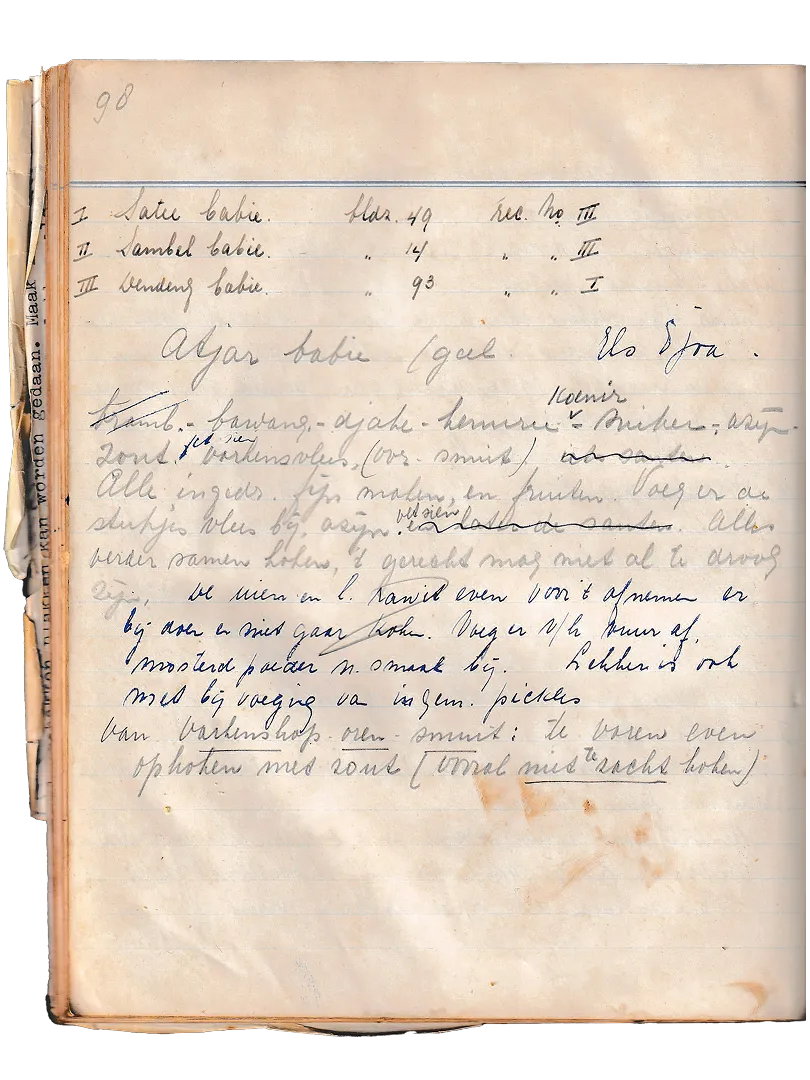 98
I Satee babie. bldz. 49 Rec. No III
II Sambel babie. " 14 " " III
III Dendeng babie. " 93 " " I
Atjar babie (geel. Els
Koenir
- bawang, - djahe - kemirie - suiker -, azijn -
zout. varkensvlees, (oor - snuit)
Alle ingedr. fijn maken, en fruiten. Voeg er de
stukjes vlees bij, azijn en Alles
verder samen koken, 't gerecht mag niet al te droog
zijn. De uien en l. rawit even voor 't afnemen er
bij doen en niet gaar koken. Voeg er v/h vuur af,
mosterd poeder n. smaak bij. Lekker is ook
met bij voeging van ingem. pickles
van varkenskop - oren - snuit: te voren even
opkoken met zout (vooral niet te zacht koken)
kan worden gedaan. Maak